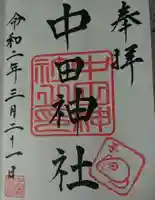 奉拝
中田神社
令和二年三月二十一日